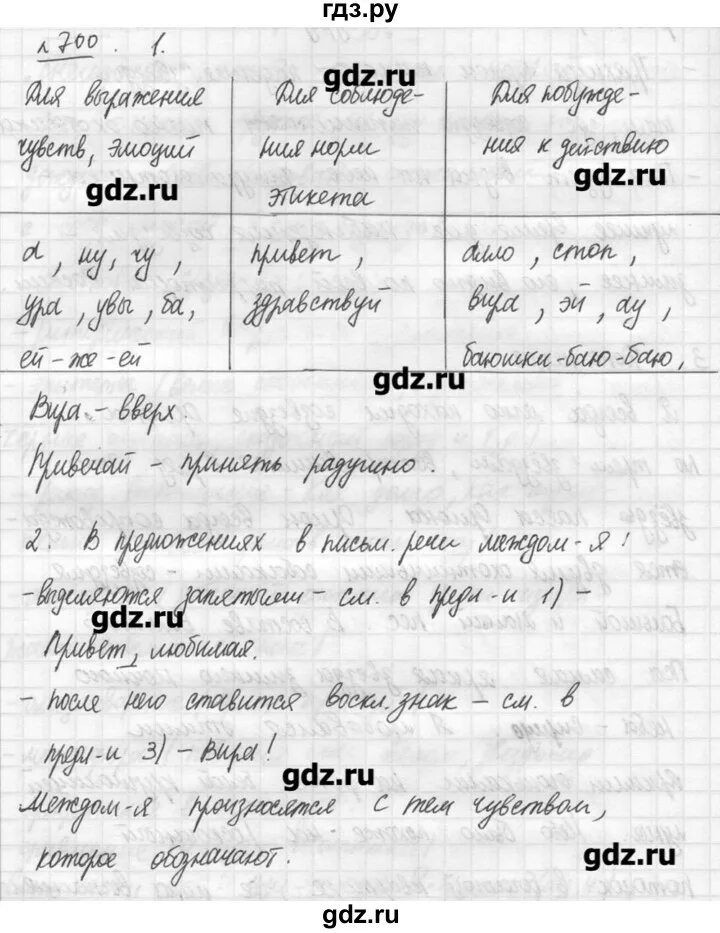 гдз.ру
№700. 1.
gdz.ru
Для выражения
чувств, эмоций
gdz.ru
Для соблюде-
ния норм
этикета
Для побужде-
ния к действию
gdz.ru
а, ну, чу,
ура, увы, ба,
ей-же-ей
привет,
здравствуй
алло, стоп,
вира, эй, ау,
баюшки-баю-баю,
gdz.ru
Вира - вверх.
Привечай - принять радушно.
2. В предложениях в письм. речи междом-я:
-выделяются запятыми - см. в предл-и 1) -
gdz.ru
Привет, любимая.
- после него ставится воскл. знак - см. в
предл-и 3) - Вира!
gdz.ru
Междом-я произносятся с тем чувством,
которое обозначают.
gdz.ru
gdz.ru